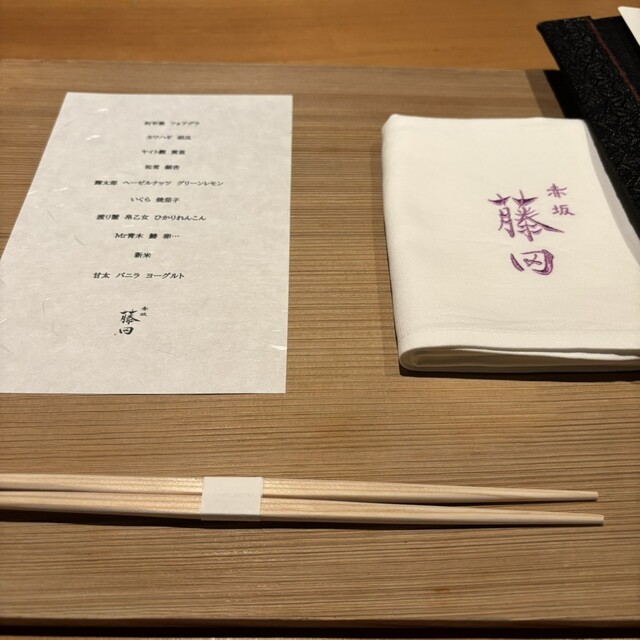 フォアグラ
カワハギ
ヤイト鰹 黄韮
松茸 銀杏
龍太郎 ヘーゼルナッツ グリーンレモン
いくら 焼茄子
渡り蟹 早乙女 ひかりれんこん
Mr青木 鰻
新米
甘太 バニラ ヨーグルト
赤坂
藤田
赤坂
藤田